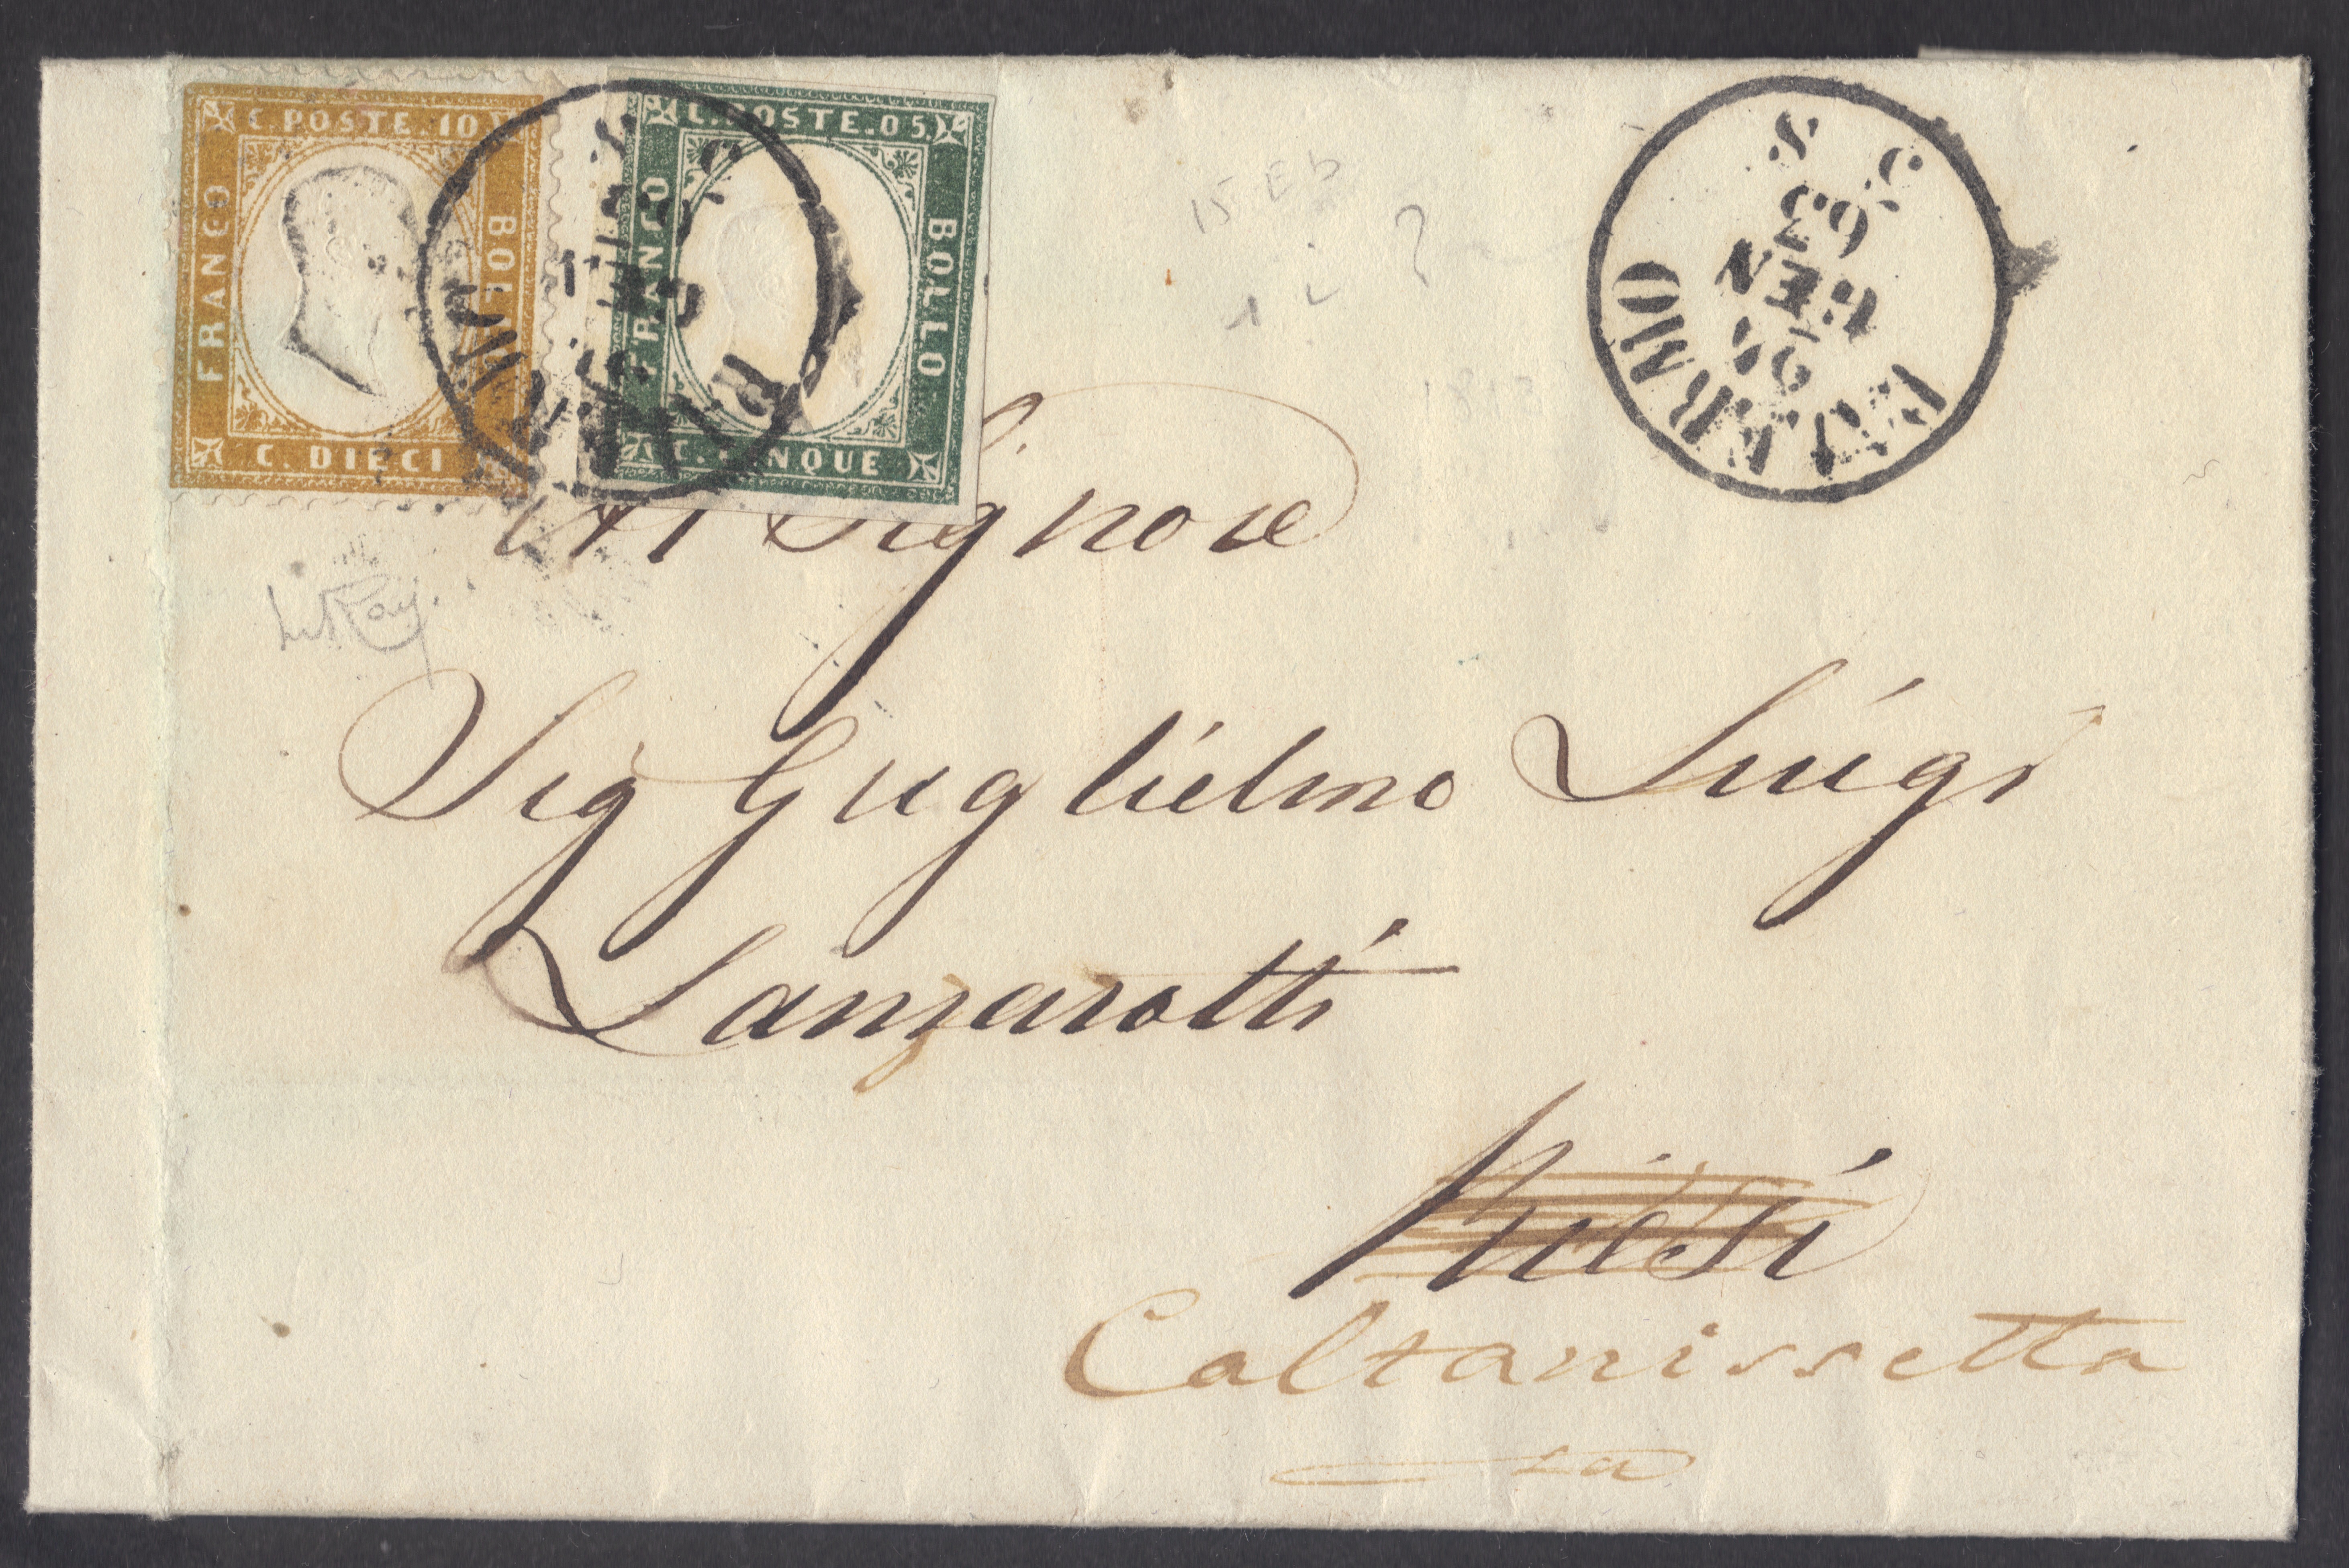 C. POSTE. 10
FRANCO
BOLLO
C. DIECI
C. POSTE. 05.
FRANCO
BOLLO
C. CINQUE
PALERMO
26
GEN
63
5. S
15 E b
Al Signore
Sig Guglielmo Luigi
Lanzarotti
Caltanissetta